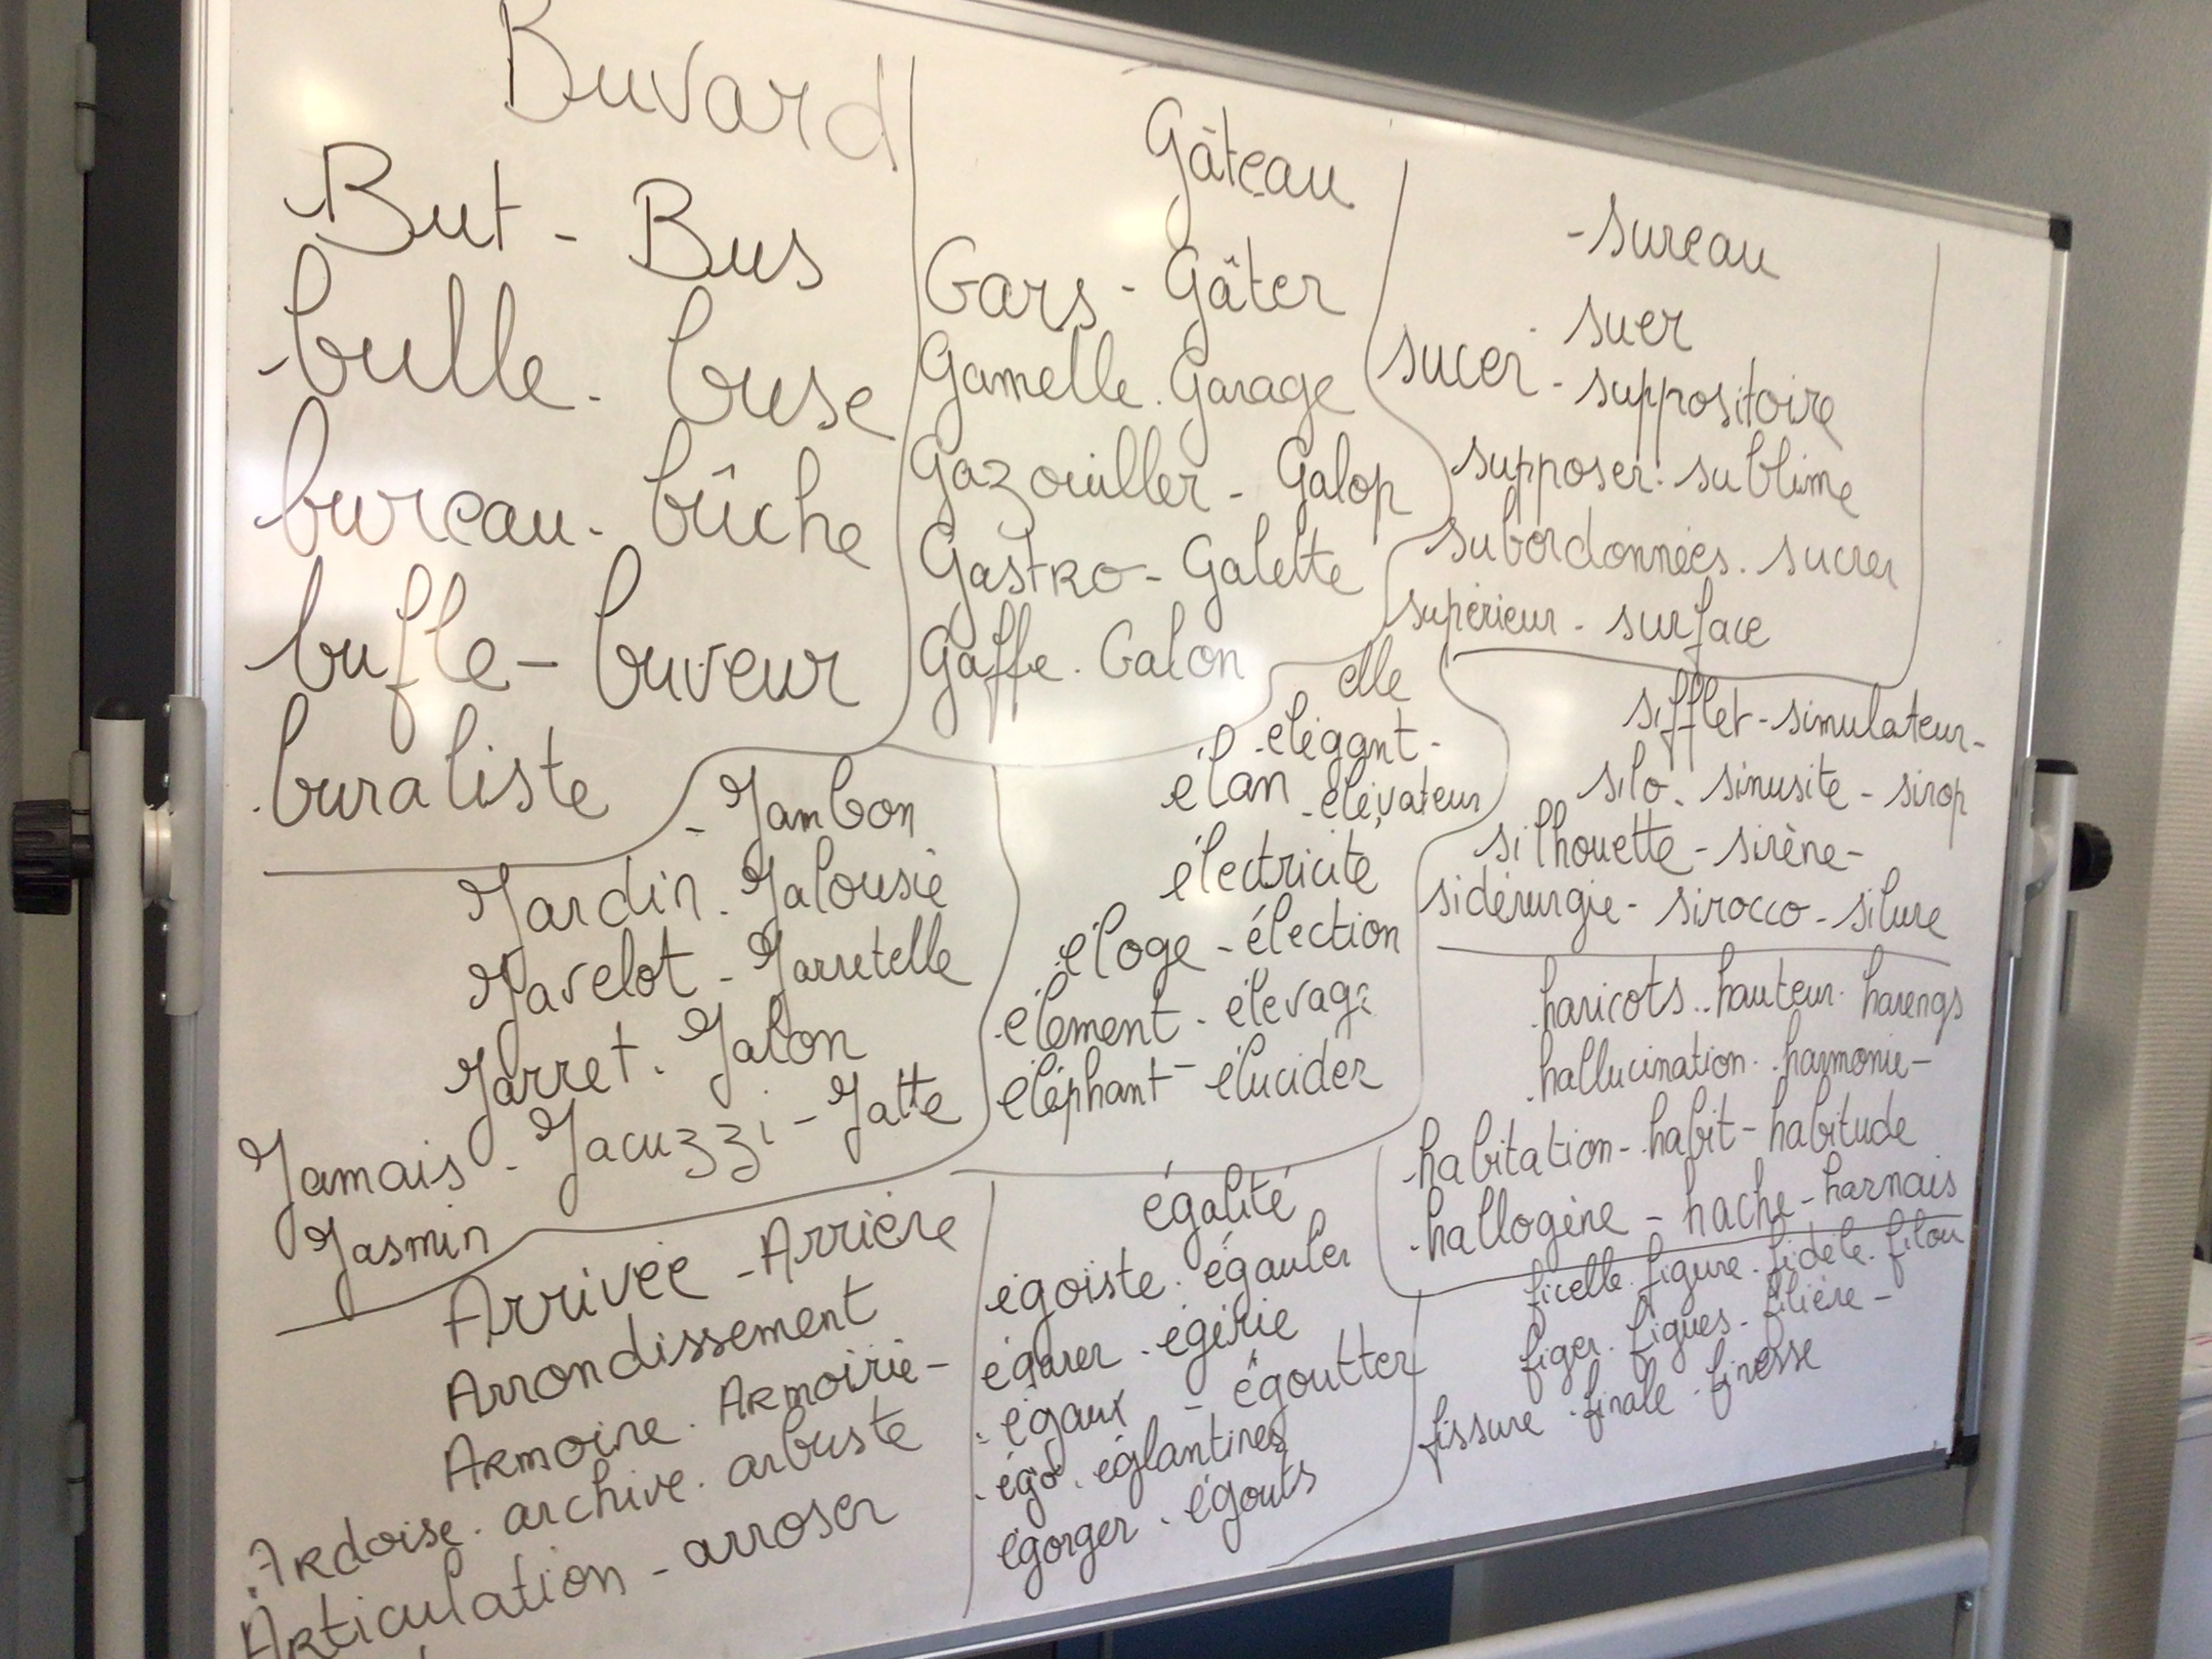 Buvard
But - Bus
bulle - buse
bureau - bûche
bufle - buveur
buraliste
Gâteau
Gars - Gâter
Gamelle - Garage
Gazouiller - Galop
Gastro - Galette
Gaffe - Galon
- sureau
suer
sucer - suppositoire
supposer - sublime
subordonnées - sucrer
supérieur - surface
- Jambon
Jardin - Jalousie
Javelot - Jarretelle
Jarret - Jalon
Jamais - Jacuzzi - Jatte
Jasmin
elle
- élégant -
élan - élévateur
électricité
éloge - élection
- élément - élevage
éléphant - élucider
sifflet - simulateur -
silo - sinusite - sirop
silhouette - sirène -
sidérurgie - sirocco - silure
haricots - hauteur - harengs
- hallucination - harmonie -
- habitation - habit - habitude
- hallogène - hache - harnais
Arrivée - Arrière
Arrondissement
Armoire - Armoirie -
Ardoise - archive - arbuste
Articulation - arroser
égalité
égoiste - égauler
égarer - égérie
- égaux - égoutter
- égo - églantines
égorger - égouts
ficelle - figure - fidèle - filou
figer - figues - filière -
fissure - finale - finesse